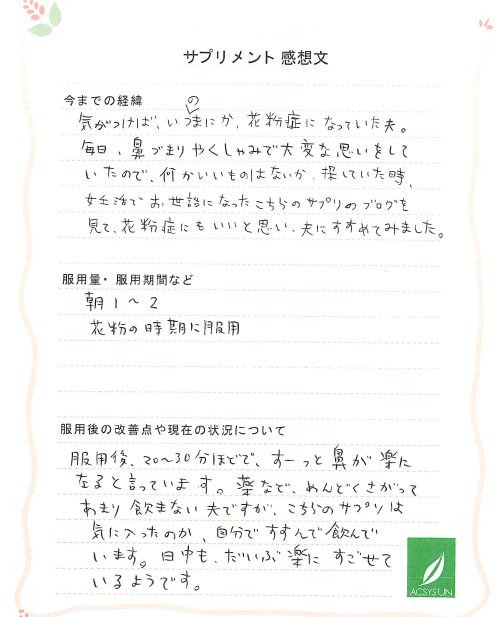 サプリメント 感想文
今までの経緯
気がつけば、いつのまにか、花粉症になっていた夫。
毎日、鼻づまりやくしゃみで大変な思いをして
いたので、何かいいものはないか、探していた時、
妊活でお世話になったこちらのサプリのブログを
見て、花粉症にもいいと思い、夫にすすめてみました。
服用量・服用期間など
朝1〜2
花粉の時期に服用
服用後の改善点や現在の状況について
服用後、20〜30分ほどで、すーっと鼻が楽に
なると言っています。薬など、めんどくさがって
あまり飲まない夫ですが、こちらのサプリは
気に入ったのか、自分ですすんで飲んで
います。日中も、だいぶ楽にすごせて
いるようです。
ACSYSUN